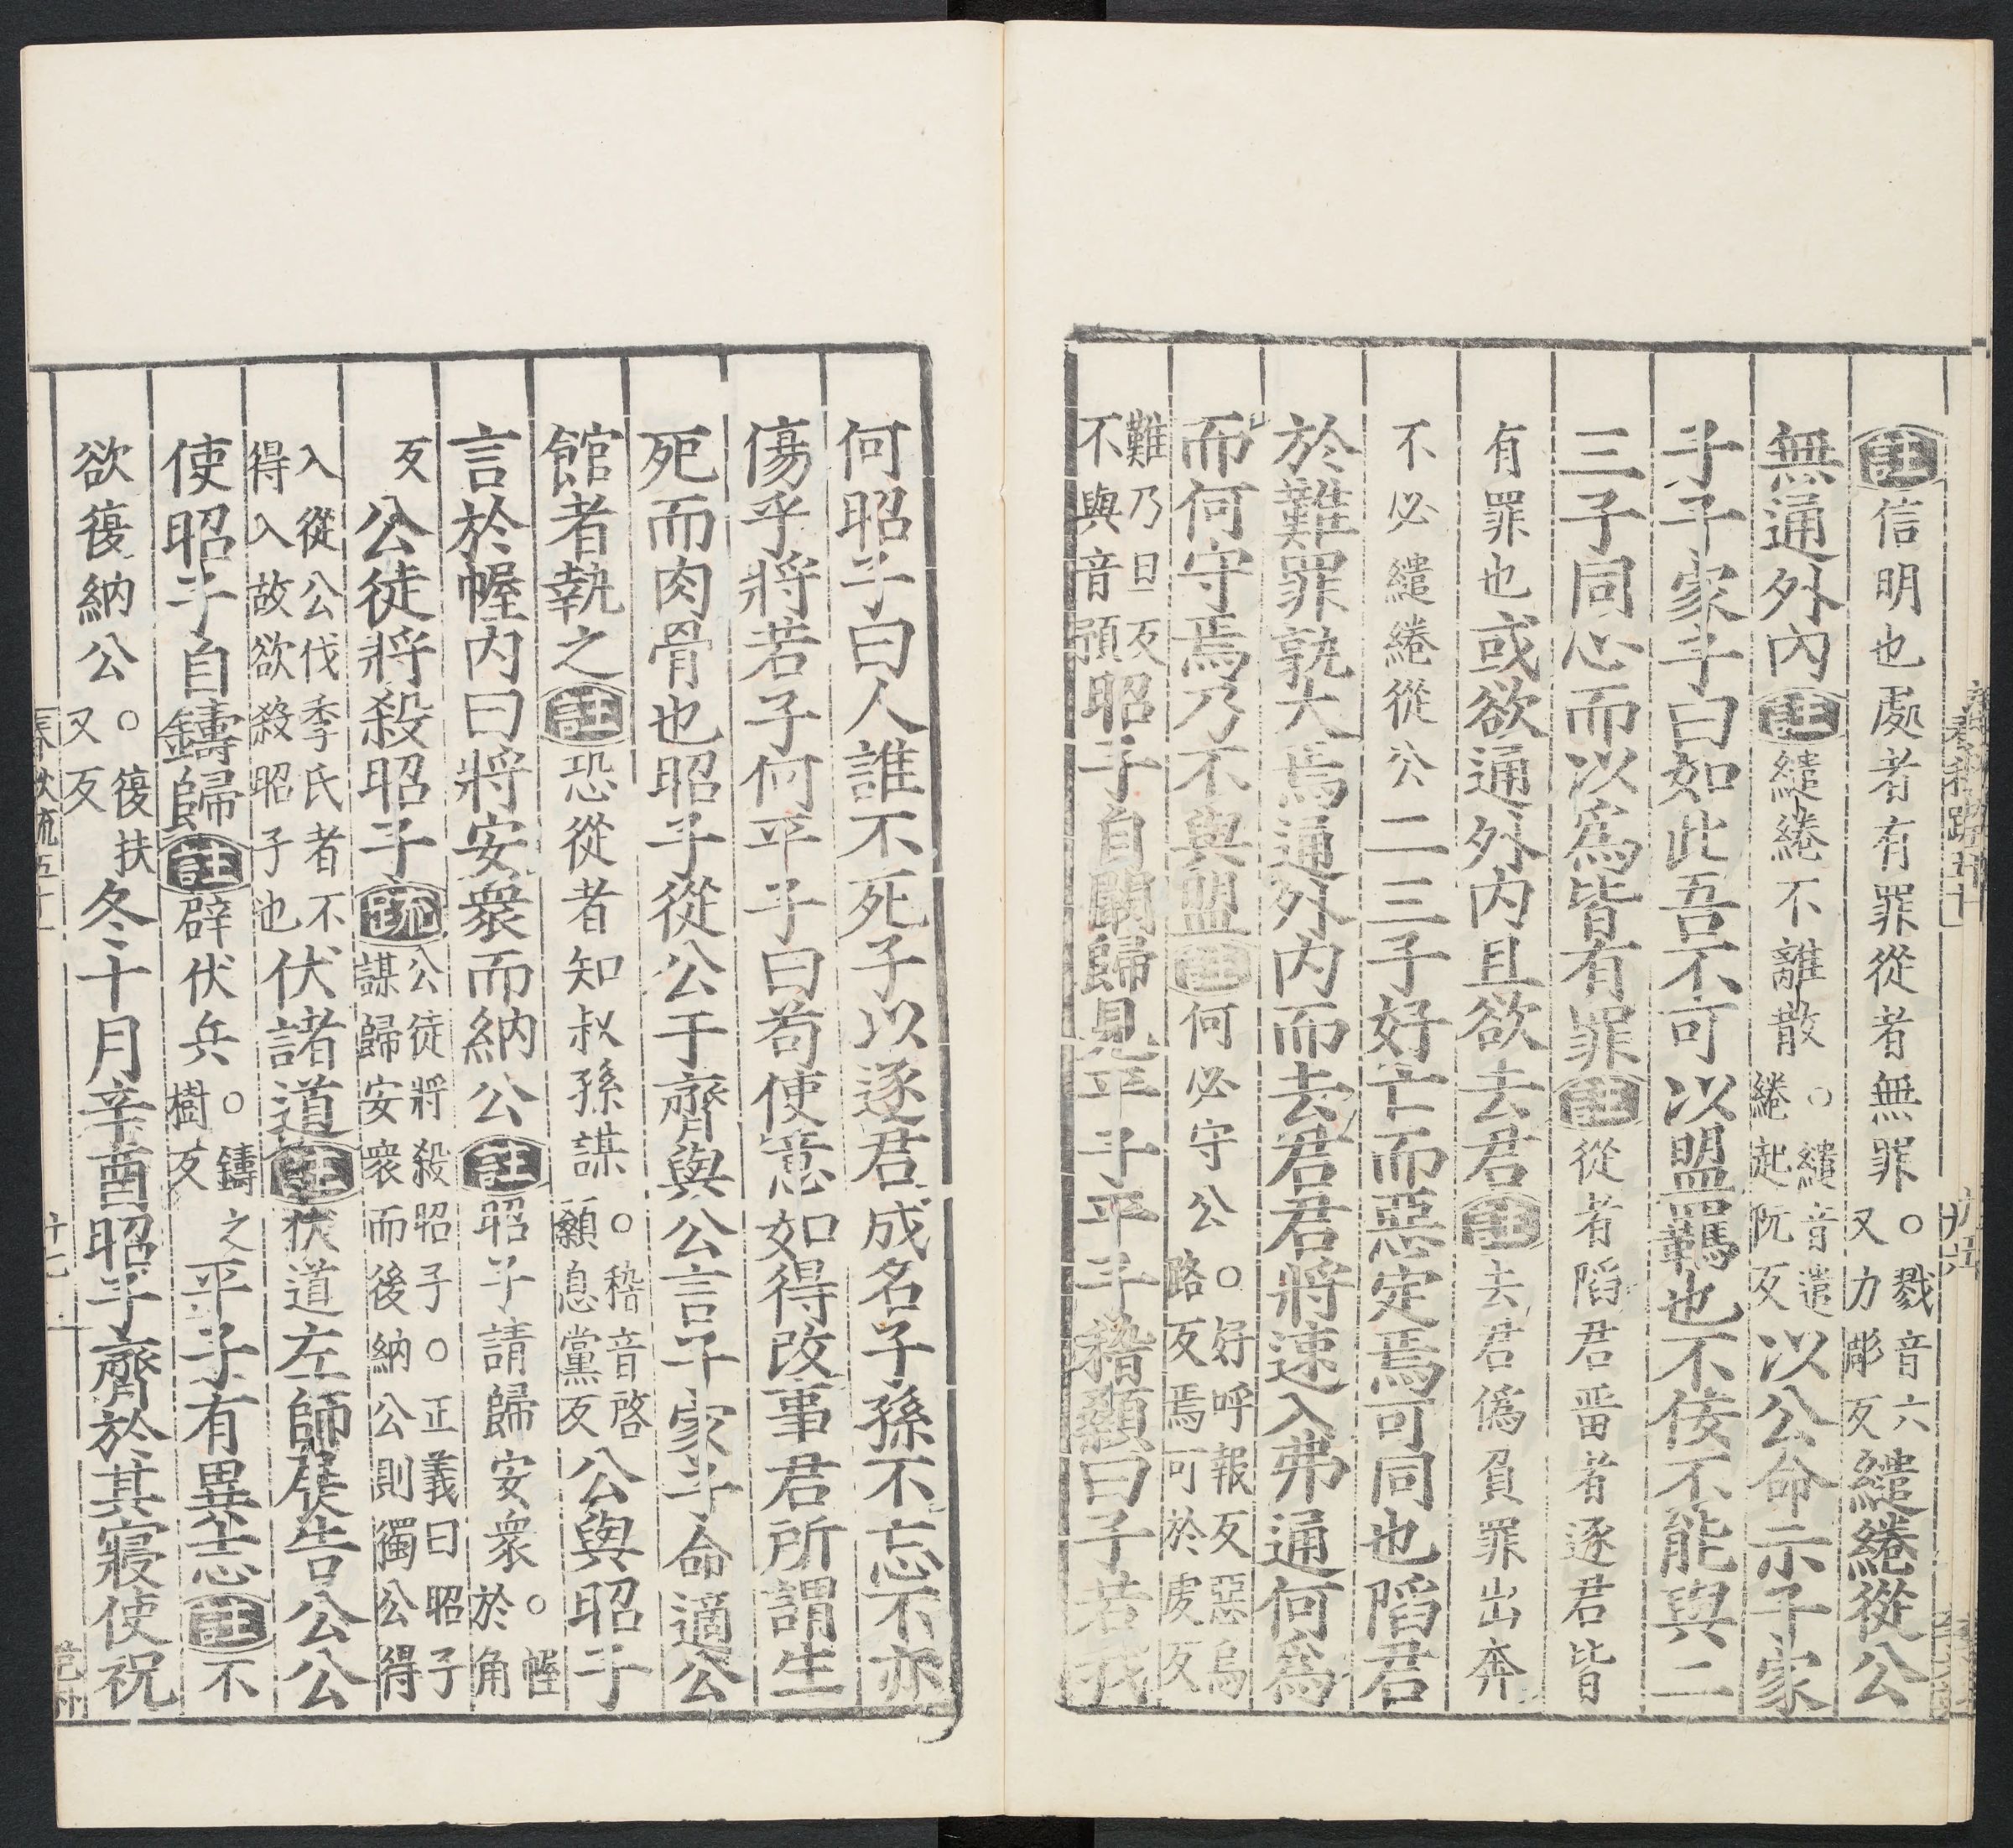 註信明也處者有罪從者無罪○戮音六又力彫反繾綣從公
無通外內註繾綣不離散○繾音遣綣起阮反以公命示子家
子子家子曰如此吾不可以盟羈也不佞不能與二
三子同心而以爲皆有罪註從者陷君畱者逐君皆
有罪也或欲通外内且欲去君註去君僞負罪出奔
不必繾綣從公二三子好亡而惡定焉可同也陷君
於難罪孰大焉通外内而去君君將速入弗通何爲
而何守焉乃不與盟註何必守公○好呼報反惡烏路反焉可於虔反
難乃旦反不與音預昭子自闞歸見平子平子稽顙曰子若我
何昭子曰人誰不死子以逐君成名子孫不忘不亦
傷乎將若子何平子曰苟使意如得改事君所謂生
死而肉骨也昭子從公于齊與公言子家子命適公
館者執之註恐從者知叔孫謀○稽音啓顙息黨反公與昭子
言於幄内曰將安衆而納公註昭子請歸安衆○幄於角
反公徒將殺昭子疏公徒將殺昭子○正義曰昭子謀歸安衆而後納公則獨公得
入從公伐季氏者不得入故欲殺昭子也伏諸道註伏道左師展告公公
使昭子自鑄歸註辟伏兵○鑄之樹反平子有異志註不
欲復納公○復扶又反冬十月辛酉昭子齊於其寢使祝
春秋疏五十一
十七